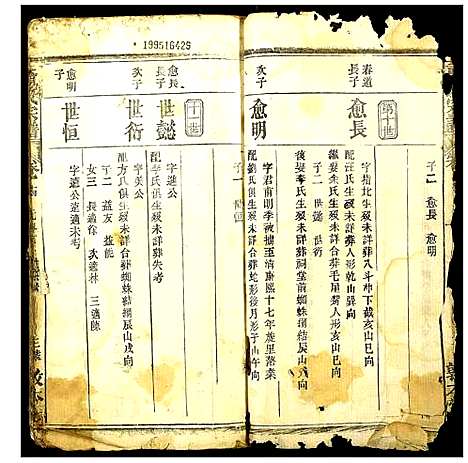 199516429
子二 愈長 愈明
第十世
春道
長子
愈長
字楷北公生歿未詳葬八斗坵下截亥山巳向
配汪氏生歿未詳葬人形乾山巽向
繼娶余氏生歿未詳葬毛屋灣人形亥山巳向
後娶李氏生歿未詳葬祠堂前蜘蛛結網辰山戌向
子二 世懿 世衍
次子
愈明
字君前明季被擄至清康熙十七年旋里落業
配劉氏俱生歿未詳合葬蛇形後月形子山午向
子一 世恒
十一世
愈長
長子
世懿
字遠公
配李氏俱生歿未詳葬失考
次子
世衍
字美公
配方氏俱生歿未詳合葬蜘蛛結網辰山戌向
子二 益友 益能
女三 長適徐 次適林 三適陳
愈明
子
世恒
字達公遠適未考